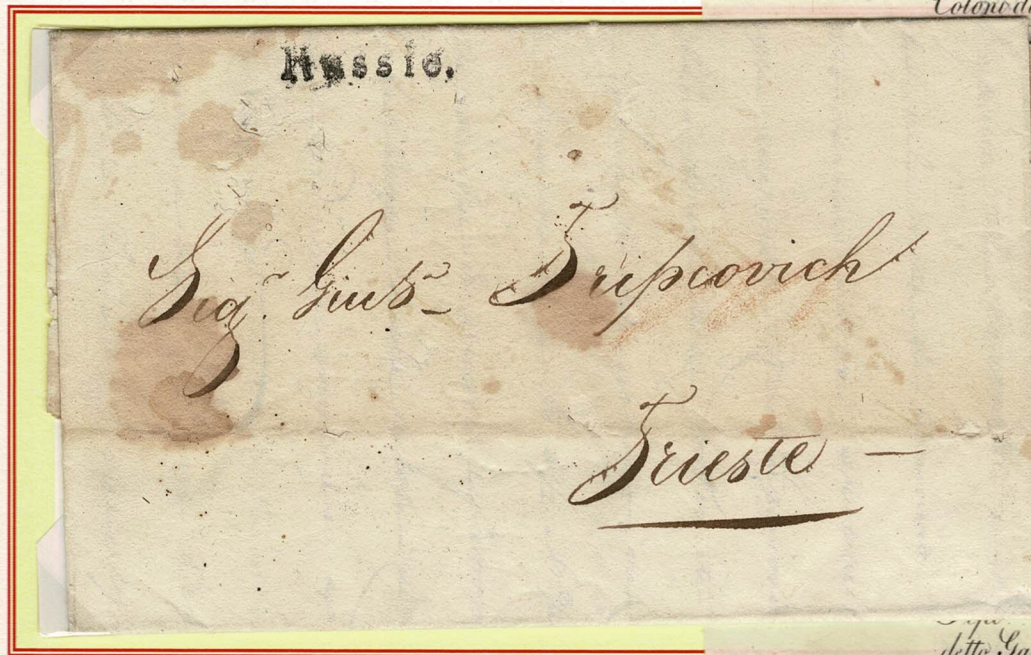 Colopi d
Russie.
Sigr. Tripcovich
Trieste –
detto Ga